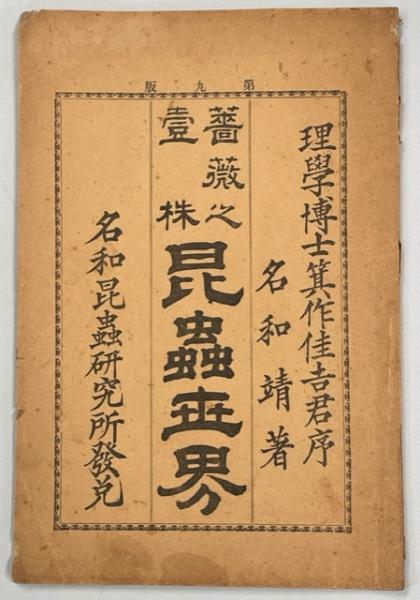 第九版
理學博士箕作佳吉君序
名和靖著
薔薇之
壹株
昆蟲世界
名和昆蟲研究所發兌